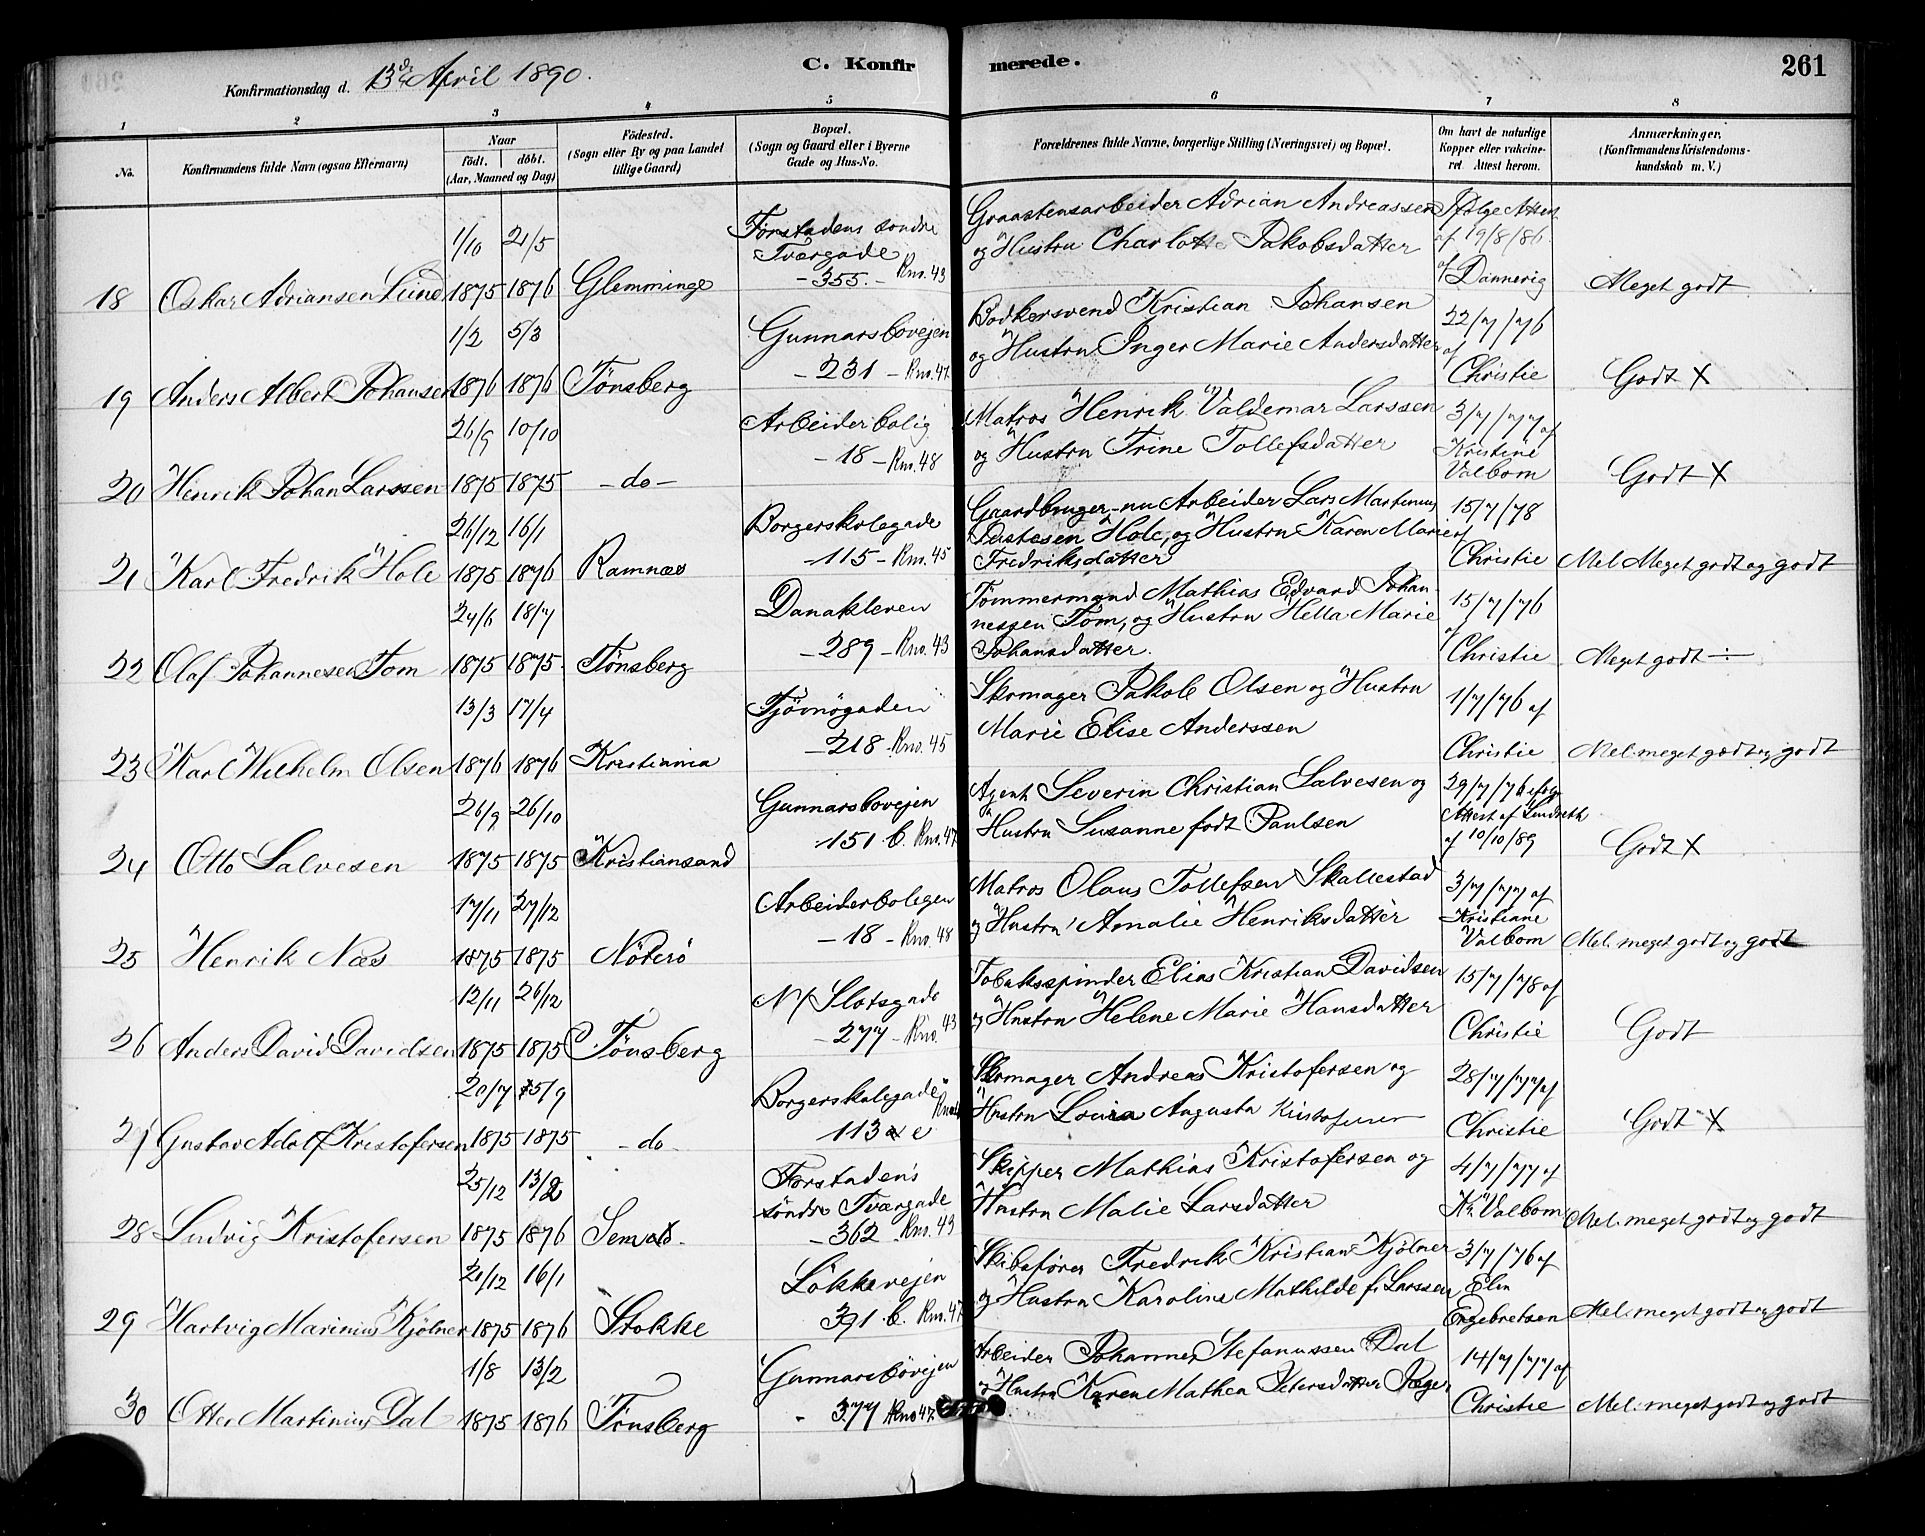 Konfirmationsdag d. 13de April 1890.
C. Konfirmerede.
261
1 2 3 4 5 6 7 8
No.
Konfirmandens fulde Navn (ogsaa Efternavn)
Naar
födt. döbt.
(Aar, Maaned og Dag)
Födested.
(Sogn eller By og paa Landet
tillige Gaard)
Bopæl.
(Sogn og Gaard eller i Byerne
Gade og Hus-No.
Forældrenes fulde Navne, borgerlige Stilling (Næringsvei) og Bopæl.
Om havt de naturlige
Kopper eller vakcine-
ret Attest herom.
Anmærkninger.
(Konfirmandens Kristendoms-
kundskab m. V.)
18 Oskar Adriansen Lund
1/10 1875
21/5 1876
Glemminge
Forstadens söndre
Tværgade
- 355. - Rno. 43
Graastensarbeider Adrian Andreassen
og Hustru Charlotte Jakobsdatter
Ifølge Attest
af 19/8/86
af Dannevig
Meget godt
19 Anders Albert Johansen
1/2 1876
5/3 1876
Tönsberg
Gunnarsbovejen
- 231 - Rno. 47
Bödkersvend Kristian Johansen
og Hustru Inger Marie Andersdatter
22/7/76
af
Christie
Godt X
20 Henrik Johan Larssen
26/9 1875
10/10 1875
- do -
Arbeiderbolig
- 18 - Rno. 48
Matros Henrik Valdemar Larssen
og Hustru Trine Tollefsdatter
3/7/77 af
Kristine
Valbom
Godt X
21 Karl Fredrik Hole
26/12 1875
16/1 1876
Ramnæs
Borgerskolegade
- 115 - Rno. 45
Gaardbruger - nu Arbeider Lars Martinus
Hole, og Hustru Karen Marie
Fredriksdatter
15/7/78
af
Christie
Mel. Meget godt og godt
22 Olaf Johannesen Tom
24/6 1875
18/7 1875
Tönsberg
Danakleven
- 289 - Rno. 43
Tömmermand Mathias Edvard Johan-
nessen Tom, og Hustru Hella Marie
Johansdatter.
15/7/76
af
Christie
Meget godt ÷
23 Karl Wilhelm Olsen
13/3 1876
17/4 1876
Kristiania
Tjömögaden
- 218 - Rno. 45
Skomager Jakob Olsen og Hustru
Marie Elise Anderssen
1/7/76 af
Christie
Mel. meget godt og godt
24 Otto Salvesen
26/9 1875
26/10 1875
Kristiansand
Gunnarsbovejen
151 b. Rno. 47
Agent Severin Christian Salvesen og
Hustru Susanne födt Paulsen
29/7/76 ifölge
Attest af
af 10/10/89
Godt X
25 Henrik Næs
17/11 1875
27/12 1875
Nöterö
Arbeiderboligen
- 18 - Rno. 48
Matros Olaus Tollefsen Skallestad
og Hustru Amalie Henriksdatter
3/7/77 af
Kristiane
Valbom
Mel. meget godt og godt
26 Anders David Davidsen
12/11 1875
26/12 1875
Tönsberg
N/ Slotsgade
- 277 - Rno. 43
Tobaksspinder Elias Kristian Davidsen
og Hustru Helene Marie Hansdatter
15/7/78 af
Christie
Godt
27 Gustav Adolf Kristofersen
20/7 1875
5/9 1875
- do -
Borgerskolegade
113 e
Skomager Andreas Kristofersen og
Hustru Lovisa Augusta Kristofersen
28/7/77 af
Christie
Godt X
28 Ludvig Kristofersen
25/12 1875
13/2 1876
Sem
Forstadens
söndre Tværgade
- 362 - Rno. 43
Skipper Mathias Kristofersen og
Hustru Malie Larsdatter
4/7/77 af
K. Valbom
Mel. meget godt og godt
29 Hartvig Marinius Kjölner
21/12 1875
16/1 1876
Stokke
Lökkevejen
391 b. Rno. 47
Skibsförer Fredrik Kristian Kjölner
og Hustru Karoline Mathilde f. Larssen
3/7/76 af
Elin
Engebretsen
Mel. meget godt og godt
30 Otter Martinius Dal
1/8 1875
13/2 1876
Tönsberg
Gunnarsbövejen
- 377 Rno 47.
Arbeider Johannes Stefanussen Dal
og Hustru Karen Mathea Petersdatter
14/7/77 af
Christie
Mel. meget godt og godt